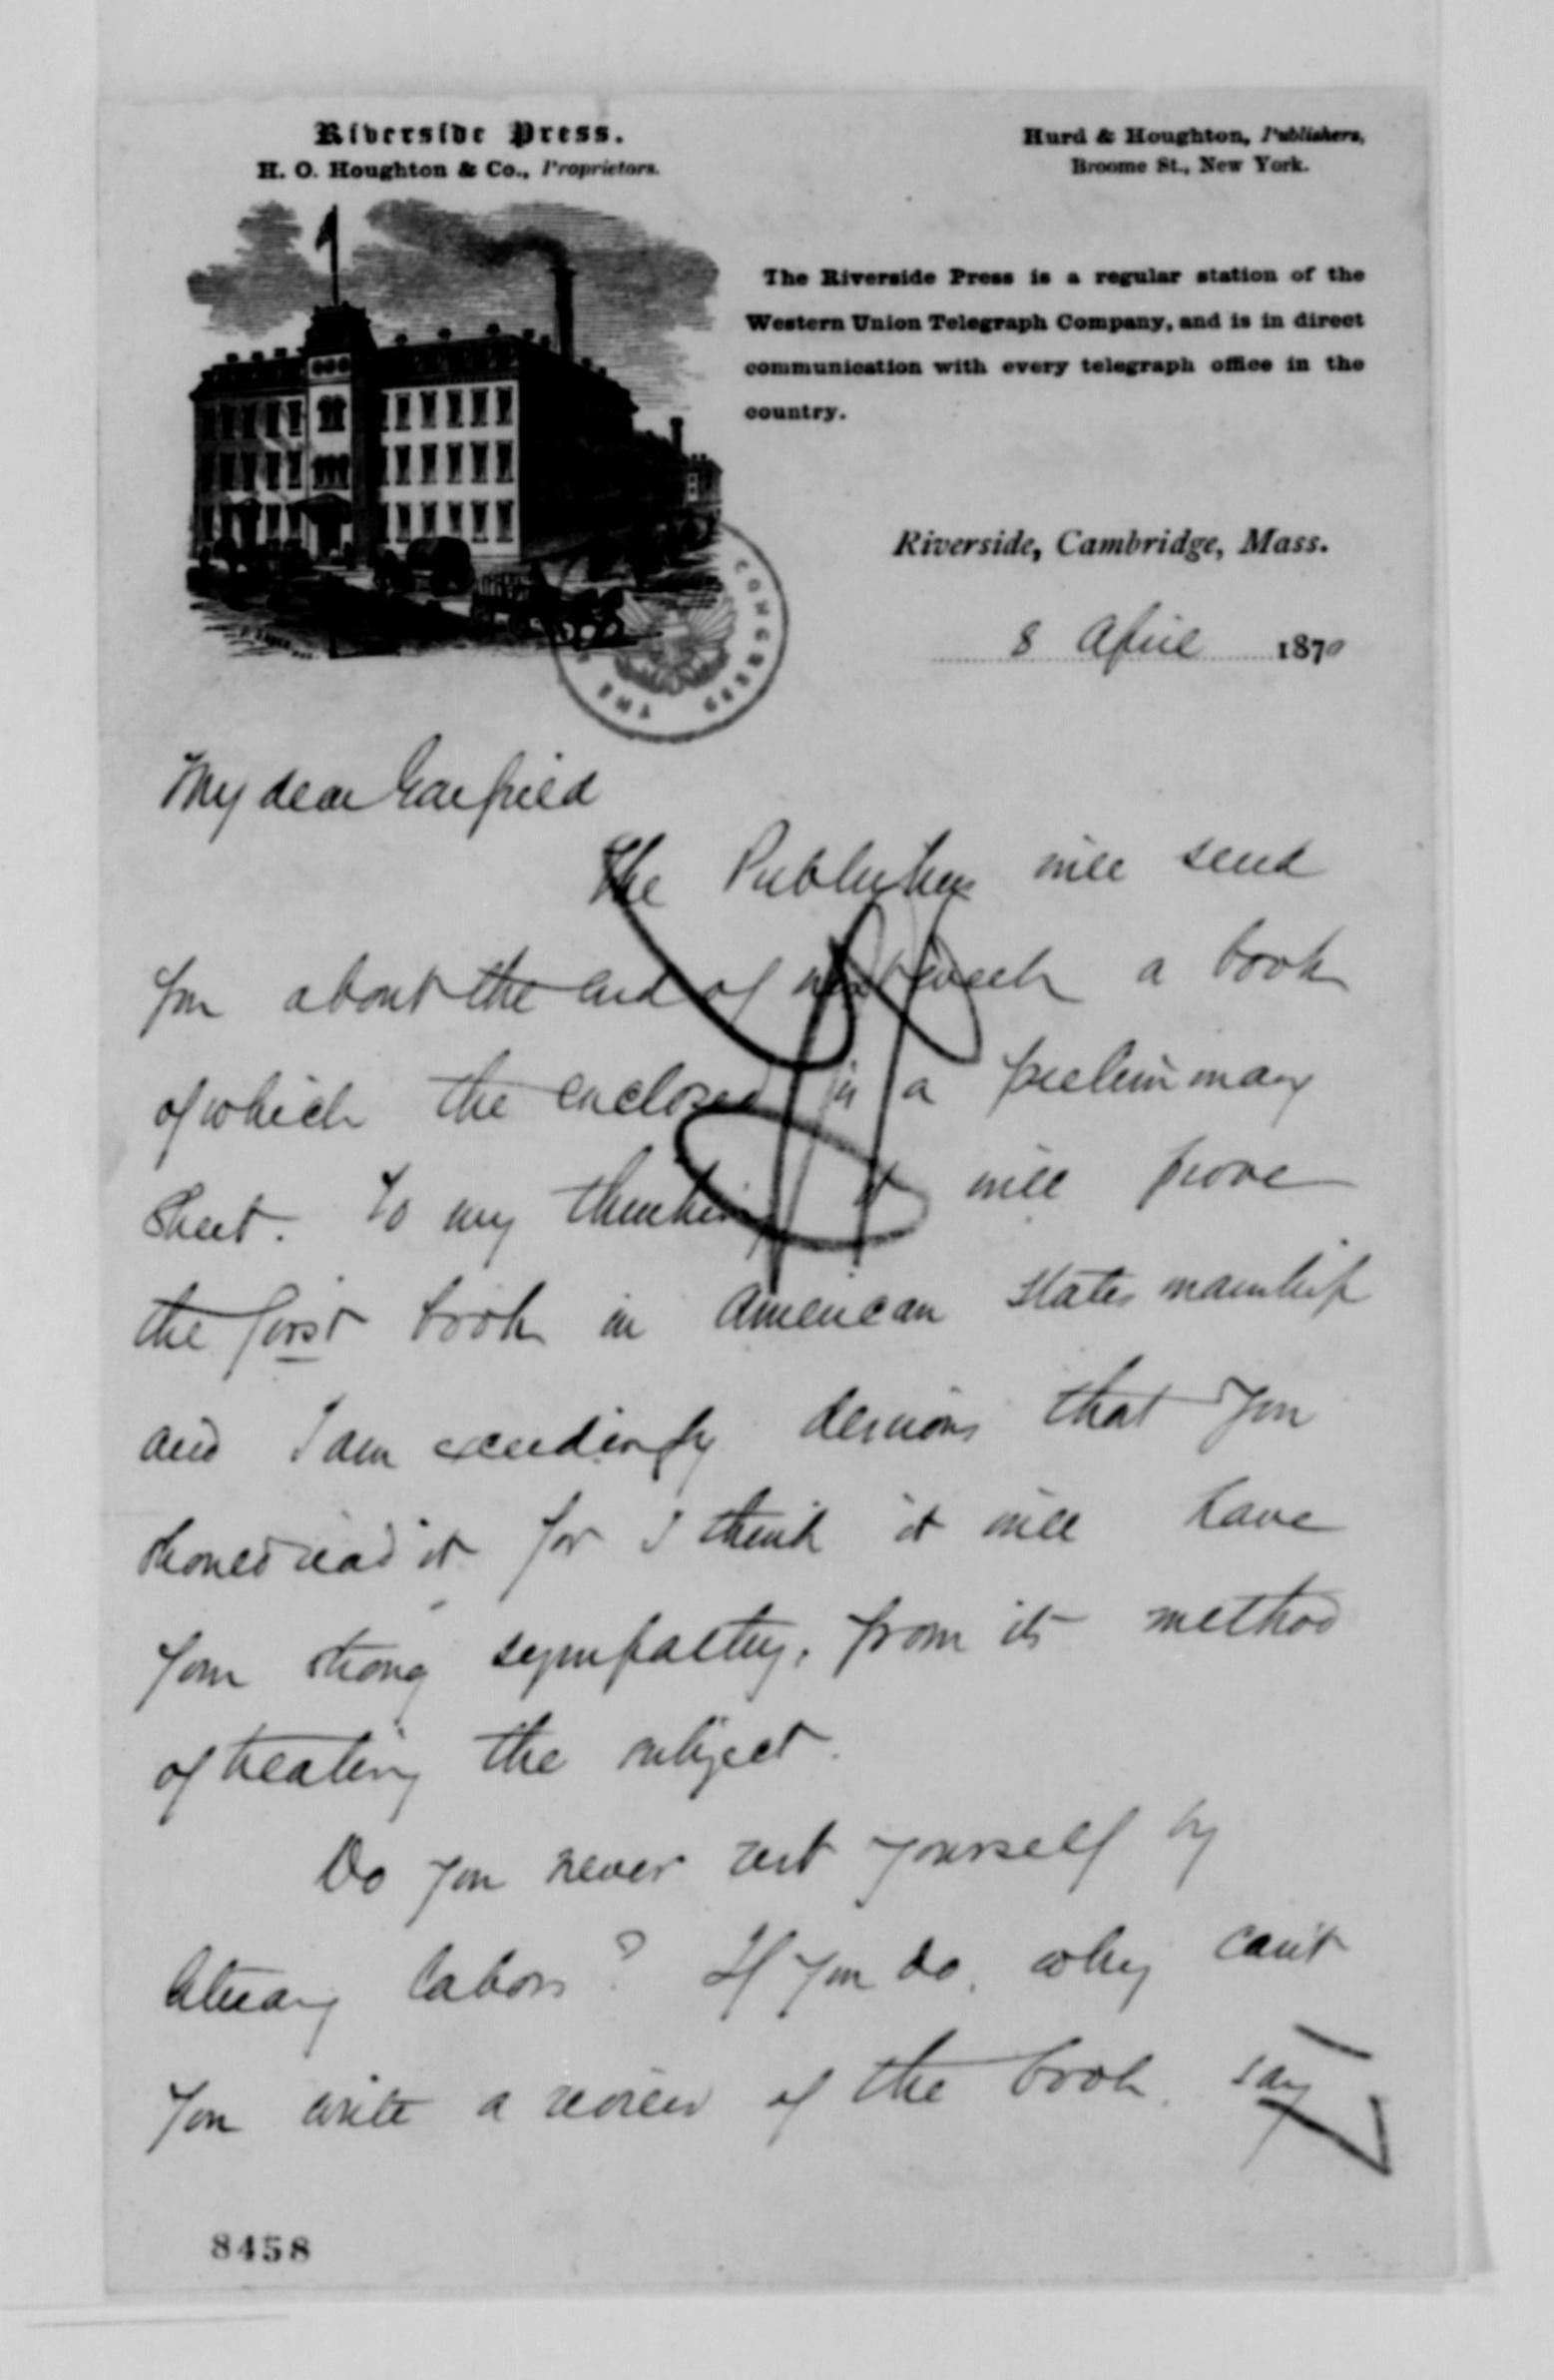 Riverside Press.
H. O. Houghton & Co., Proprietors.
Hurd & Houghton, Publishers,
Broome St., New York.
The Riverside Press is a regular station of the
Western Union Telegraph Company, and is in direct
communication with every telegraph office in the
country.
THE CONGRESS
Riverside, Cambridge, Mass.
8 April 1870
My dear Garfield
The Publishers will send
you about the end of next week a book
of which the enclosed is a preliminary
sheet. To my thinking it will prove
the first book in American statesmanship
and I am exceedingly desirous that you
should read it for I think it will have
your strong sympathy, from its method
of treating the subject.
Do you never rest yourself by
literary labors? If you do, why can't
you write a review of the book, say
8458